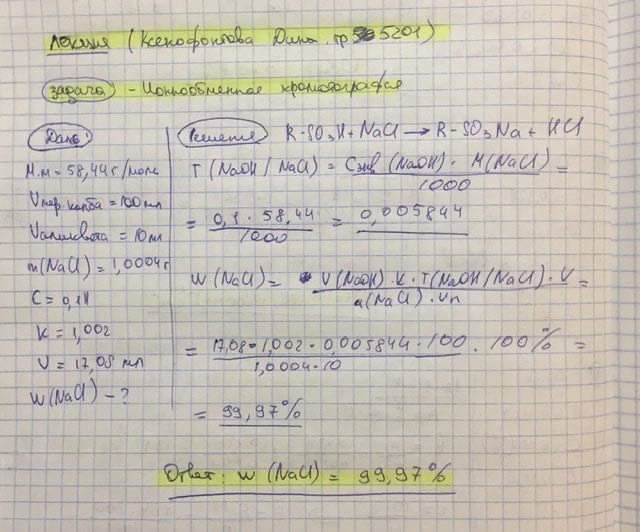 Лекция (Ксенофонтова Дина. гр 5201)
задача - Ионнообменная хроматография
Дано:
М.м = 58,44 г/моль
Vмер. колба = 100 мл
Vаликвота = 10 мл
m(NaCl) = 1,0004 г
C = 0,1 Н
K = 1,002
V = 17,08 мл
W(NaCl) - ?
Решение R-SO3H + NaCl → R-SO3Na + HCl
T(NaOH/NaCl) = Cэкв(NaOH) · M(NaCl) =
1000
= 0,1 · 58,44 = 0,005844
1000
W(NaCl) = V(NaOH) · K · T(NaOH/NaCl) · V =
a(NaCl) · Vп
= 17,08 · 1,002 · 0,005844 · 100 · 100% =
1,0004 · 10
= 99,97%
Ответ: W(NaCl) = 99,97%